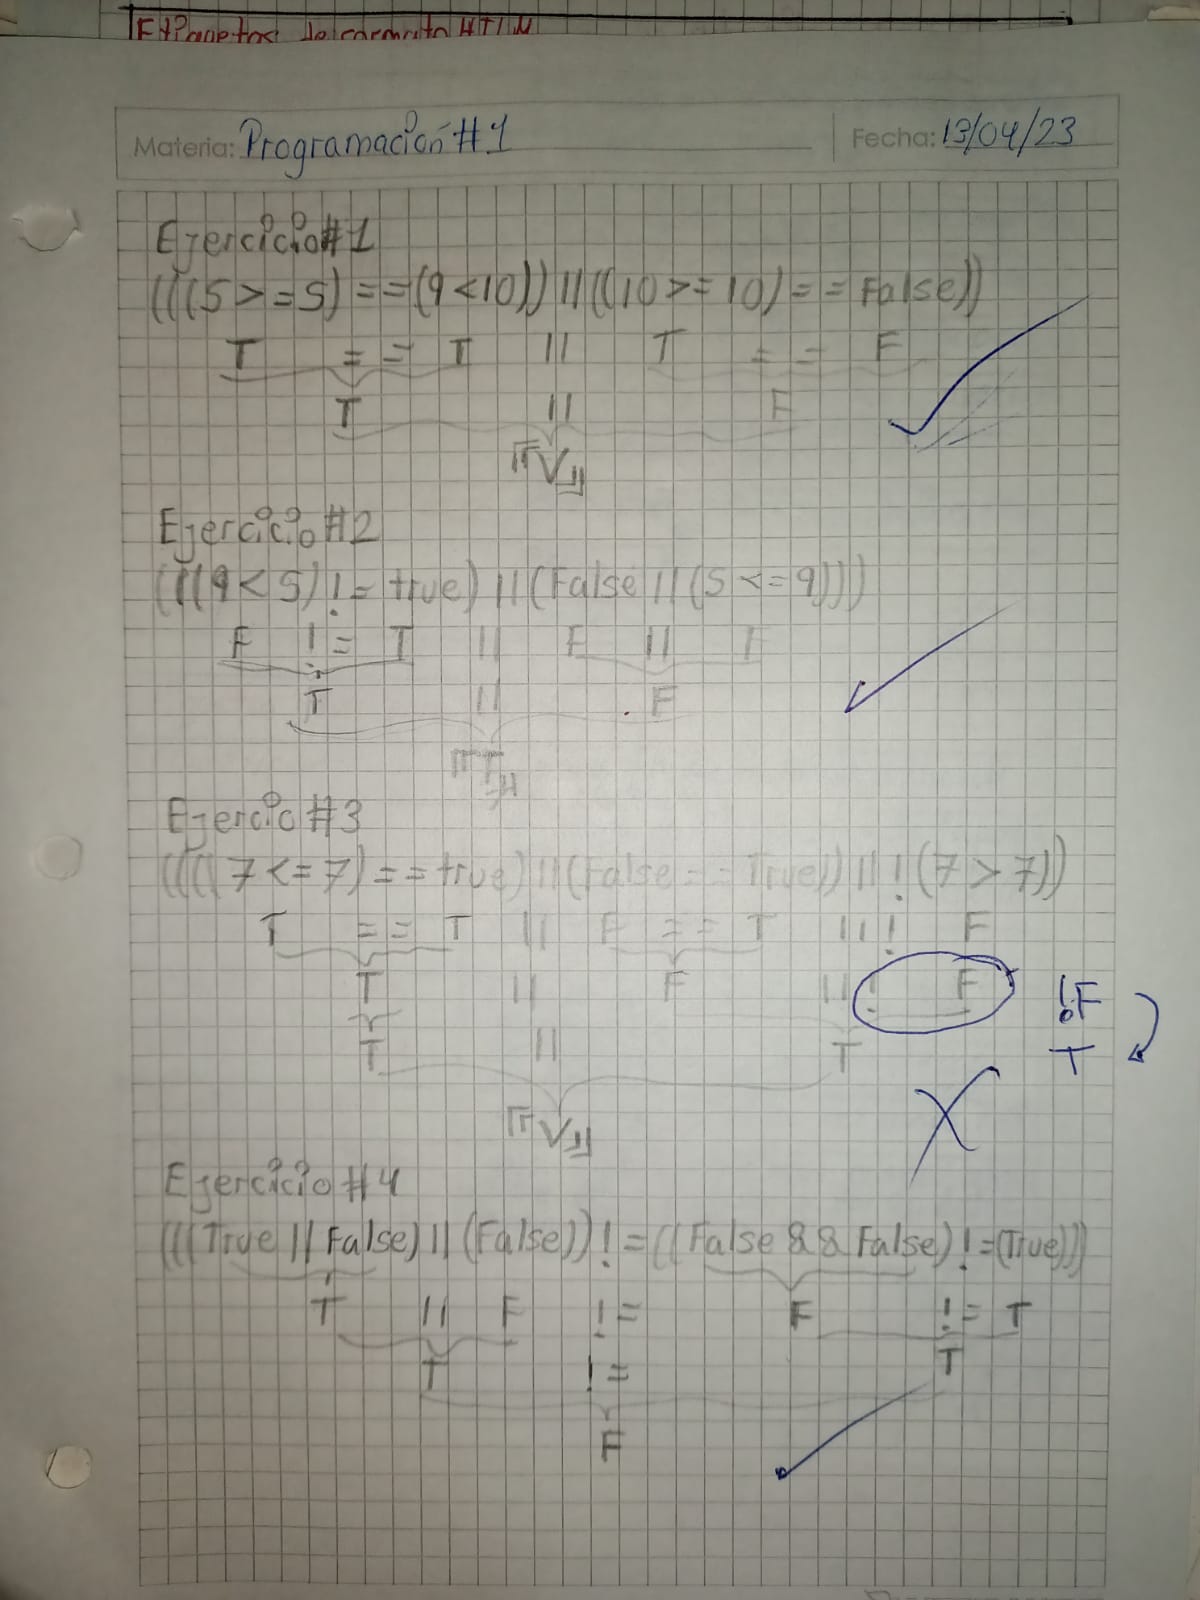 Etiquetas de formato HTML
Materia: Programación #1 Fecha: 13/04/23
Ejercicio #1
(((5 >= 5) == (9 < 10)) || ((10 >= 10) == False))
T == T || T == F
T || F
V
Ejercicio #2
(((9 < 5) != true) || (False || (5 <= 9)))
F != T || F || F
T || F
T
Ejercio #3
((((7 <= 7) == true) || (False == True)) || ! (7 > 7))
T == T || F == T || ! F
T || F || ! F !F
T || T T
V
Ejercicio #4
(((True || False) || (False)) != ((False && False) != (True)))
T || F != F != T
T != T
F